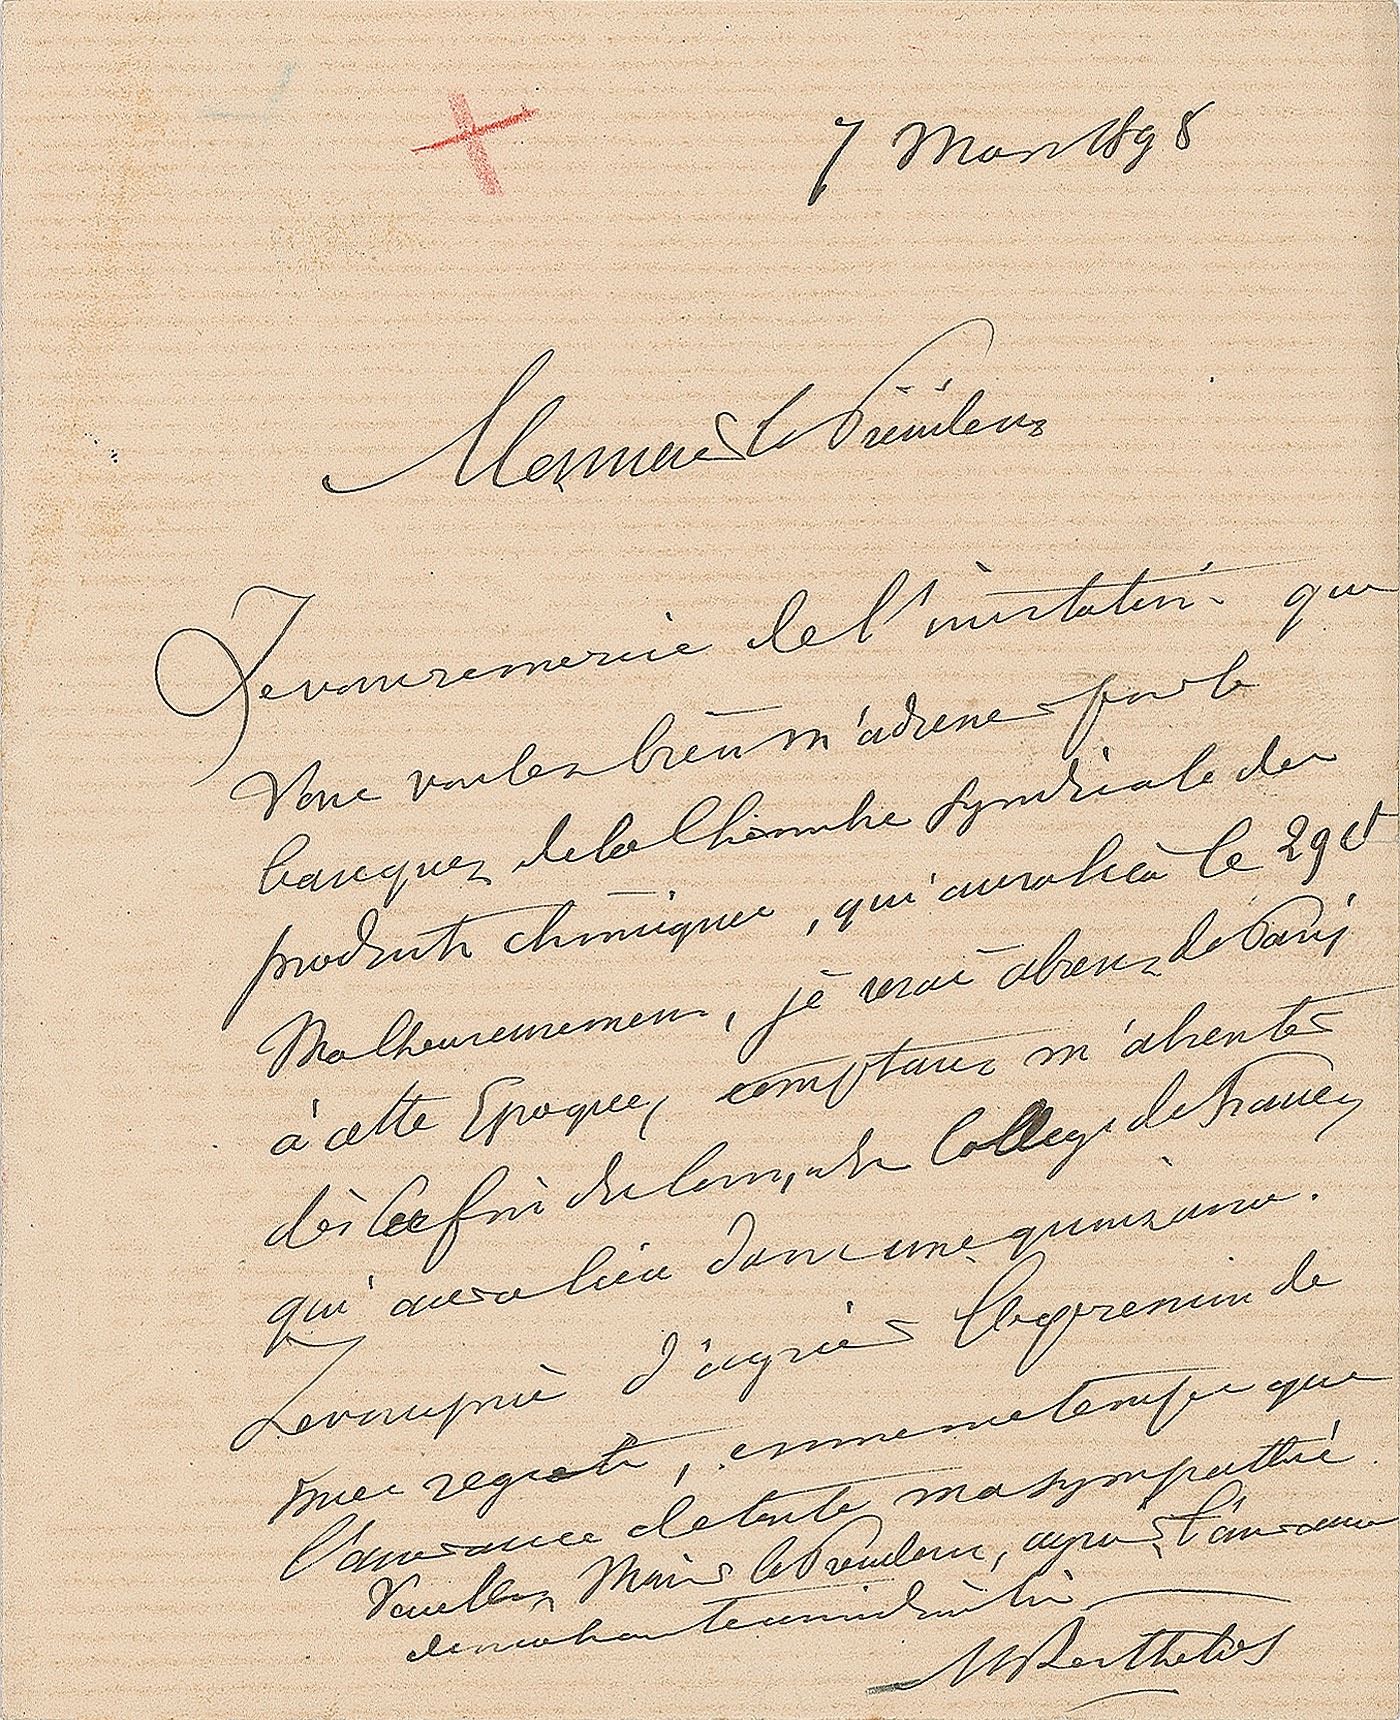 7 Mars 1898
Monsieur le Président
Je vous remercie de l'invitation que
vous voulez bien m'adresser pour le
banquet de la Chambre syndicale des
produits chimiques, qui aura lieu le 29 ct
Malheureusement, je serai absent de Paris
à cette Epoque, comptant m'absenter
dès la fin du cours, du College de France,
qui aura lieu dans une quinzaine.
Je vous prie d'agréer l'expression de
mes regrets, en meme temps que
l'assurance de toute ma sympathie.
Veuillez, Monsieur le Président, agréer l'assurance
de ma haute considération
M Berthelot